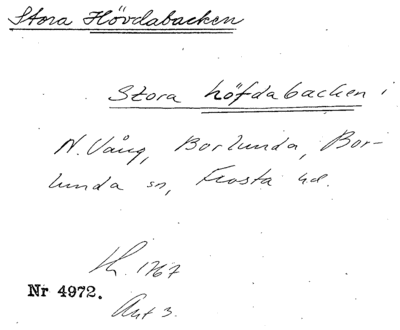 Stora Hövdabacken
Stora höfdabacken i
N. Vång, Borlunda, Bor-
lunda sn, Frosta hd.
1767
Nr 4972.
Akt 3.